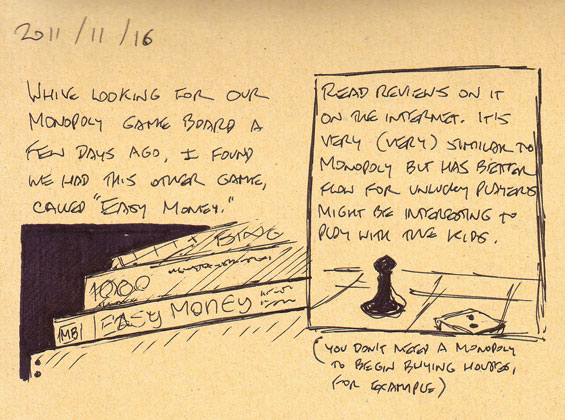 2011/11/16
WHILE LOOKING FOR OUR
MONOPOLY GAME BOARD A
FEW DAYS AGO, I FOUND
WE HAD THIS OTHER GAME,
CALLED "EASY MONEY."
BING
1000
MB EASY MONEY
READ REVIEWS ON IT
ON THE INTERNET. IT'S
VERY (VERY) SIMILAR TO
MONOPOLY BUT HAS BETTER
FLOW FOR UNLUCKY PLAYERS
MIGHT BE INTERESTING TO
PLAY WITH THE KIDS.
(YOU DON'T NEED A MONOPOLY
TO BEGIN BUYING HOUSES,
FOR EXAMPLE)